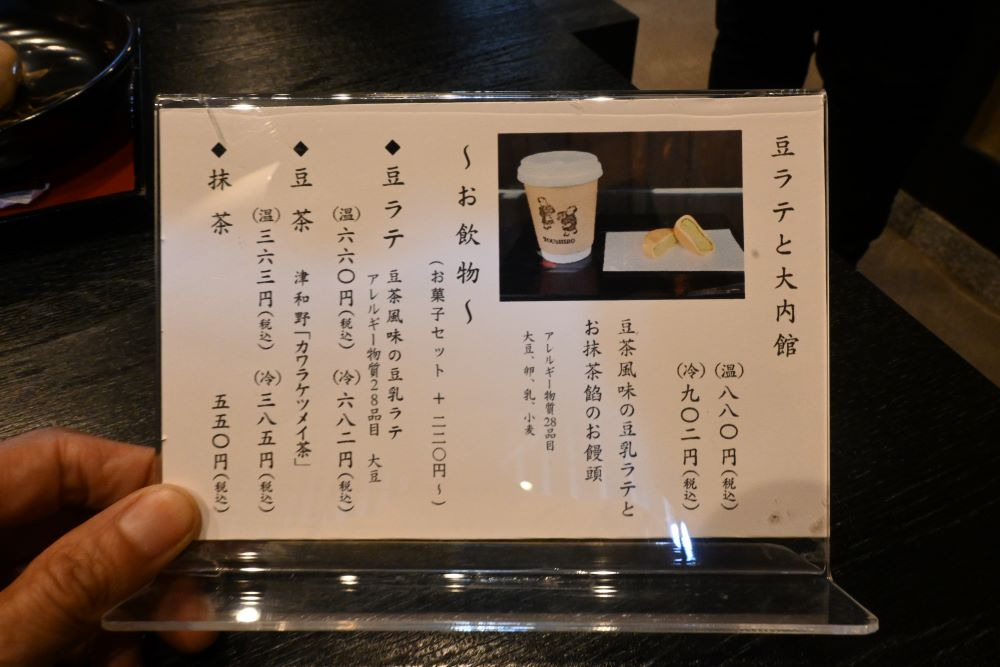 豆ラテと大内館
(温)八八〇円(税込)
(冷)九〇二円(税込)
豆茶風味の豆乳ラテと
お抹茶餡のお饅頭
アレルギー物質28品目
大豆、卵、乳、小麦
～お飲物～
(お菓子セット ＋二二〇円～)
◆豆ラテ 豆茶風味の豆乳ラテ
アレルギー物質28品目 大豆
(温)六六〇円(税込) (冷)六八二円(税込)
◆豆茶 津和野「カワラケツメイ茶」
(温)三六三円(税込) (冷)三八五円(税込)
◆抹茶 五五〇円(税込)